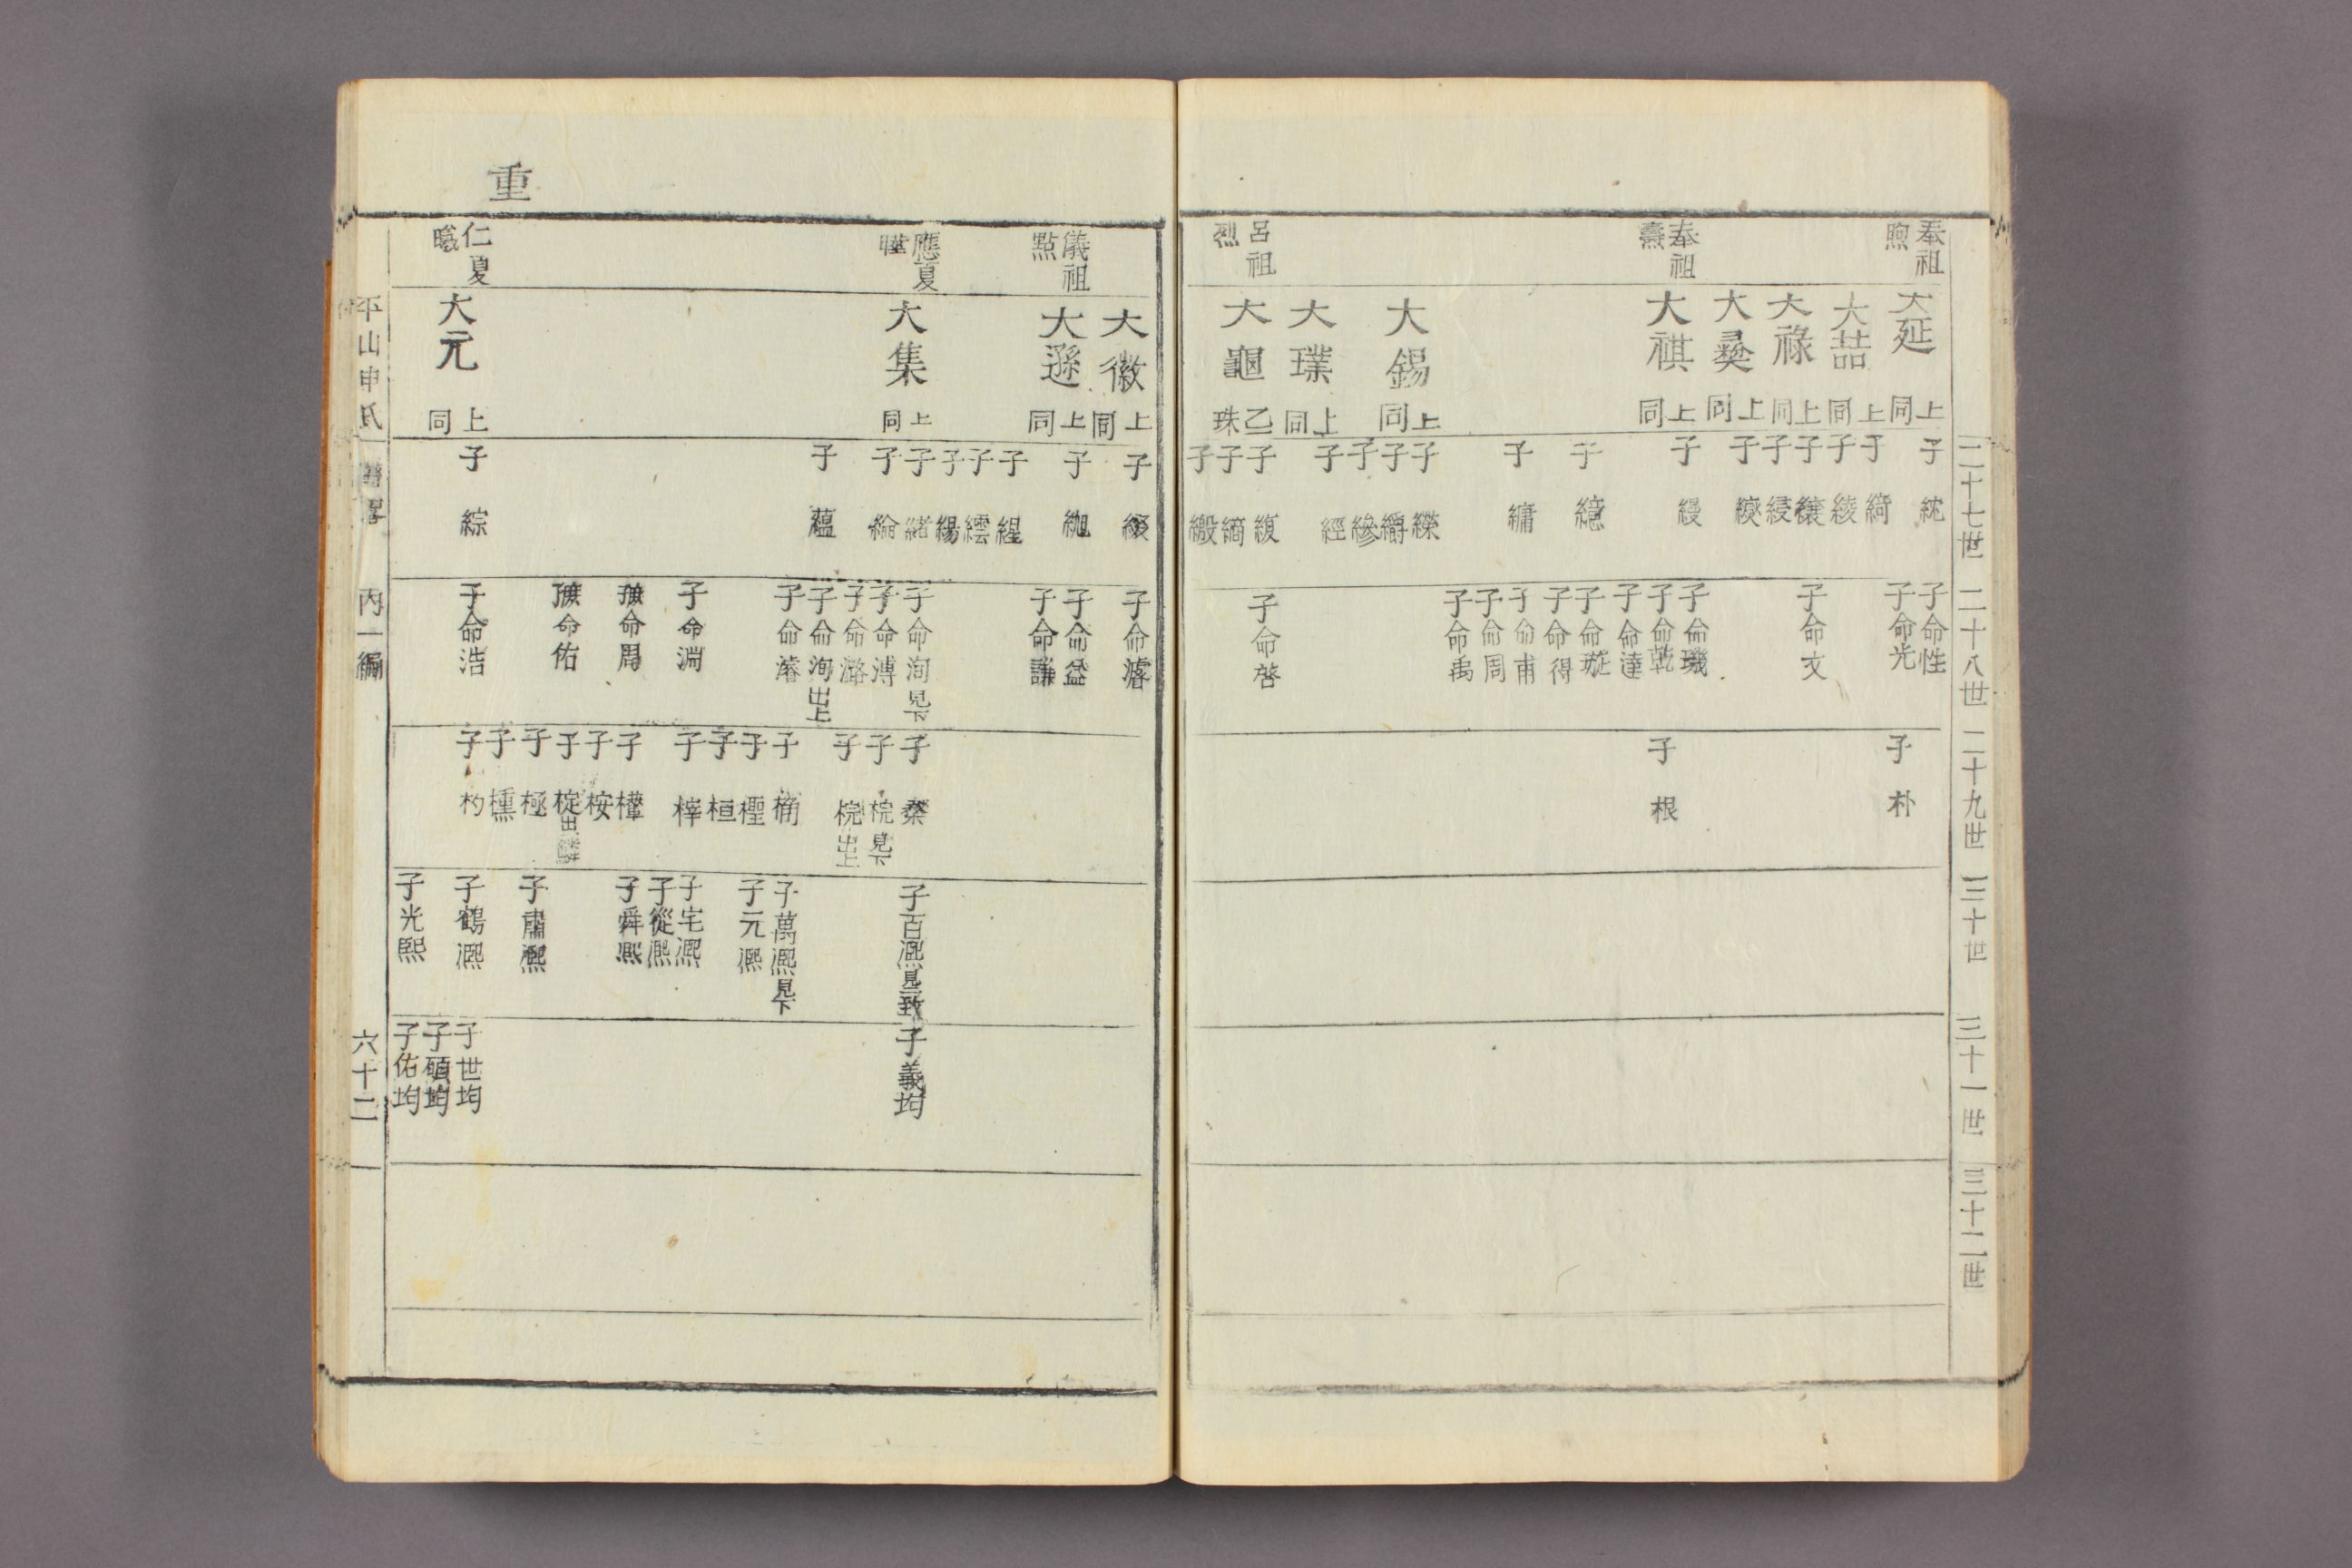 二十七世
二十八世
二十九世
三十世
三十一世
三十二世
奉祖 煦
奉祖 燾
呂祖 烈
大延 上同
大喆 上同
大祿 上同
大彛 上同
大祺 上同
大錫 上同
大璞 上同
大龜 乙珠
子 統
子 綺
子 綾
子
子
子
子 縵
子 繶
子 縤
子
子
子 縿
子 經
子
子 縞
子 緞
子命性
子命光
子命文
子命璣
子命乾
子命達
子命璇
子命得
子命甫
子命周
子命禹
子命啓
子 朴
子 根
重
儀祖 點
應夏
仁夏 曦
大徽 上同
大遜 上同
大集 上同
大元 上同
子
子
子 緹
子 繧
子
子 緒
子 綸
子 蘊
子 綜
子命濬
子命益
子命謙
子命洵 見下
子命溥
子命潞
子命洵 出上
子命濬
子命淵
子命周
子命佑
子命浩
子
子 梡 見下
子 梡 出上
子 桶
子 檉
子 桓
子 榟
子
子 桉
子 椗
子 極
子 櫄
子 杓
子百熙
子萬熙 見下
子元熙
子宅熙
子從熙
子舜熙
子肅熙
子鶴熙
子光熙
子義均
子世均
子碩均
子佑均
平山申氏 譜畧 丙一編 六十二